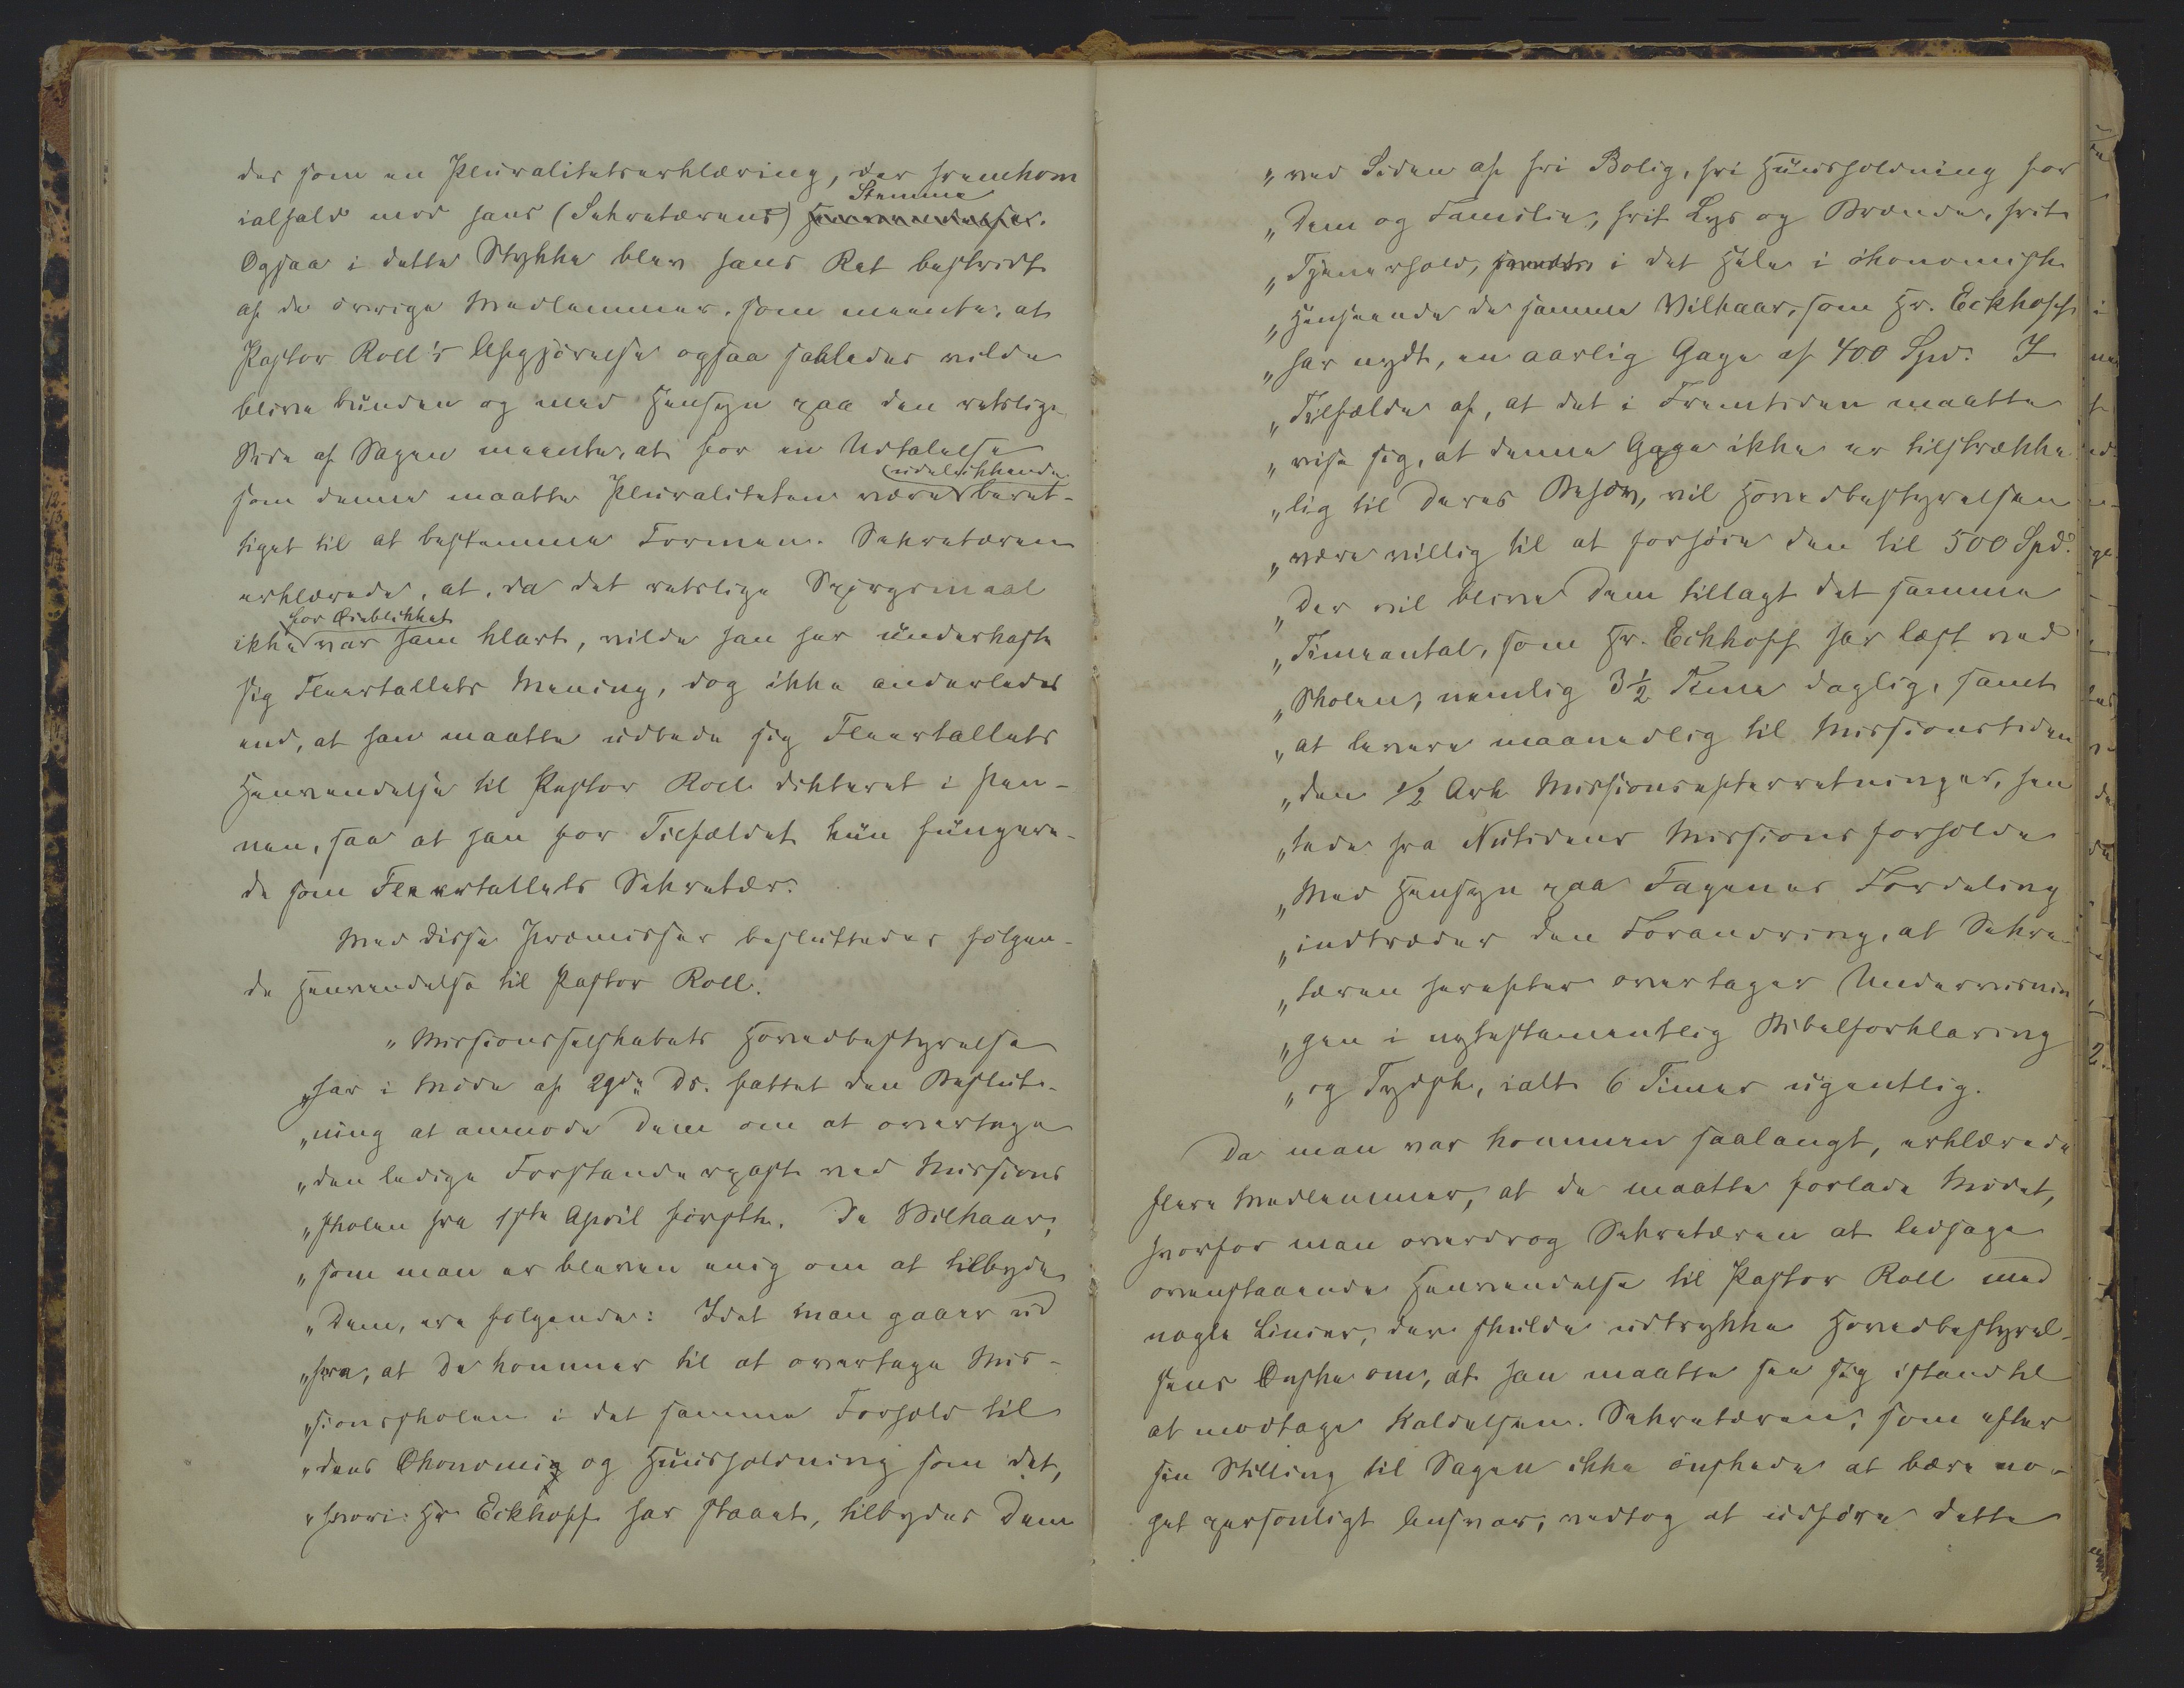 der som en Pluralitetserklæring, der fremkom
ialfald mod hans (Sekretærens) Stemme
Ogsaa i dette Stykke blev hans Ret bestridt
af de övrige Medlemmer, som meente, at
Pastor Roll's Afgjörelse ogsaa saaledes vilde
blive bunden og med Hensyn paa den retslige
Side af Sagen meente, at for en Udtalelse
som denne maatte Pluraliteten være udelukkende beret-
tiget til at bestemme Formen. Sekretæren
erklærede, at, da det retslige Spörgsmaal
ikke for Öieblikket var ham klart, vilde han her underkaste
sig Fleertallets Mening, dog ikke anderledes
end, at han maatte udbede sig Fleertallets
Henvendelse til Pastor Roll dikteret i Pen-
nen, saa at han for Tilfældet kun fungere-
de som Fleertallets Sekretær.
Med disse Præmisser besluttedes fölgen-
de Henvendelse til Pastor Roll.
"Missionsselskabets Hovedbestyrelse
"har i Möde af 29de Ds. fattet den Beslut-
"ning at anmode Dem om at overtage
"den ledige Forstanderpost ved Missions
"skolen fra 1ste April förstk. De Vilkaar,
"som man er bleven enig om at tilbyde
"Dem, ere fölgende: Idet man gaaer ud
"fra, at De kommer til at overtage Mis-
"sionsskolen i det samme Forhold til
"dens Ökonomie og Huusholdning som det,
"hvori Hr Eckhoff har staaet, tilbydes Dem
"ved Siden af fri Bolig, fri Huusholdning for
"Dem og Familie, frit Lys og Brænde, frit
"Tjenerhold, i det Hele i ökonomisk
"Henseende de samme Vilkaar, som Hr. Eckhoff
"har nydt, en aarlig Gage af 400 Spd. I
"Tilfælde af, at det i Fremtiden maatte
"vise sig, at denne Gage ikke er tilstrække
"lig til Deres Behov, vil Hovedbestyrelsen
"være villig til at forhöie den til 500 Spd.
"Der vil blive Dem tillagt det samme
"Timeantal, som Hr. Eckhoff har læst ved
"Skolen, nemlig 3½ Time daglig, samt
"at levere maanedlig til Missionstiden
"den 1/2 Ark Missionsefterretninger, hen
"tede fra Nutidens Missionsforholde
"Med Hensyn paa Fagenes Fordeling
"indtræder den Forandring, at Sekre-
"tæren herefter overtager Undervisnin
"gen i nytestamentlig Bibelforklaring
"og Tydsk, ialt 6 Timer ugentlig.
Da man var kommen saalangt, erklærede
flere Medlemmer, at de maatte forlade Mödet,
hvorfor man overdrog Sekretæren at ledsage
ovenstaaende Henvendelse til Pastor Roll med
nogle Linier, der skulde udtrykke Hovedbestyrel-
sens Önske om, at han maatte see sig istand til
at modtage Kaldelsen. Sekretæren, som efter
sin Stilling til Sagen ikke önskede at bære no-
get personligt Ansvar, vedtog at udföre dette